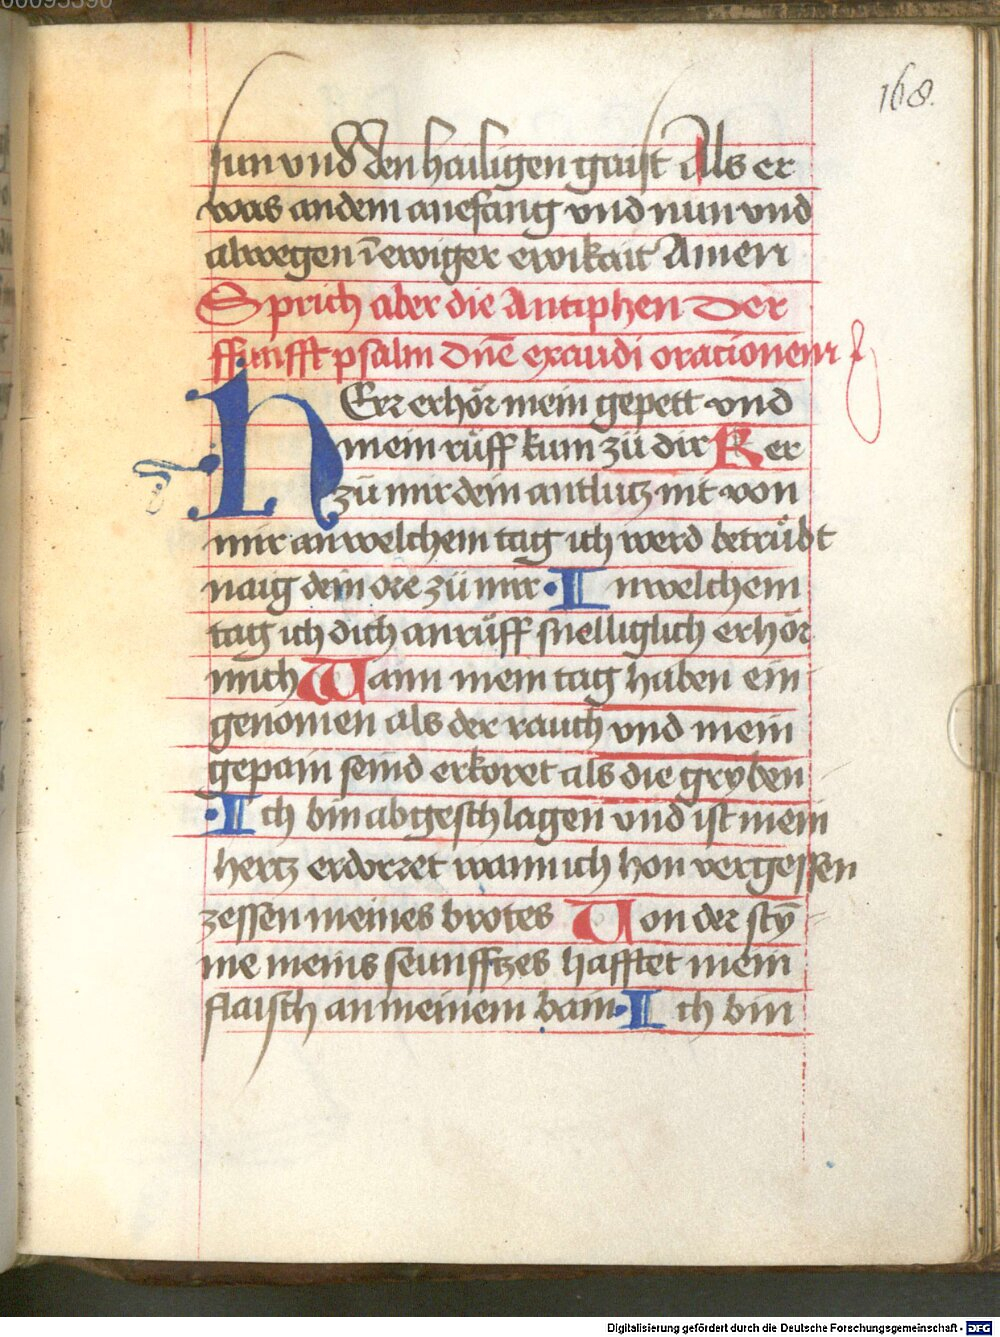 00095390
168.
sun vnd den hailigen gaist Als er
was an dem anefang vnd nun vnd
alwegen ī ewiger ewikait Amen
Sprich aber die Antiphen Der
ffunfft psalm dn̄e exaudi orationem
HErr erhör mein gepett vnd
mein rüff kum zü dir Ker
zü mir dein antlutz nit von
mir an welchem tag ich werd betrübt
naig dein ore zü mir · In welchem
tag ich dich anrüff snelliglich erhör
mich Wann mein tag haben ein
genomen als der rauch vnd mein
gepain seind erkoret als die gryben
· Ich bin abgeschlagen vnd ist mein
hertz erdorret wann ich hon vergessen
zessen meines brotes Von der sty̅
me meins seunfftzes hafftet mein
flaisch an meinem bain · Ich bin
Digitalisierung gefördert durch die Deutsche Forschungsgemeinschaft - DFG